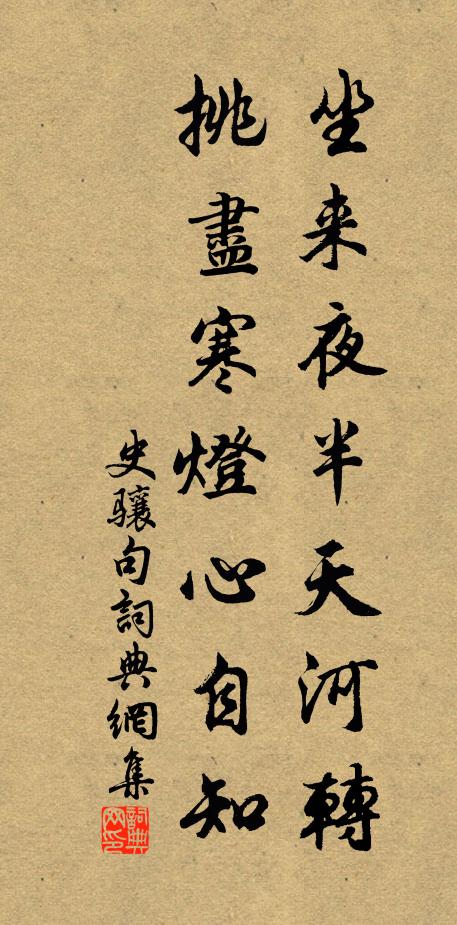 坐来夜半天河轉
挑盡寒燈心自知
史骧句詞典網集
詞典网印